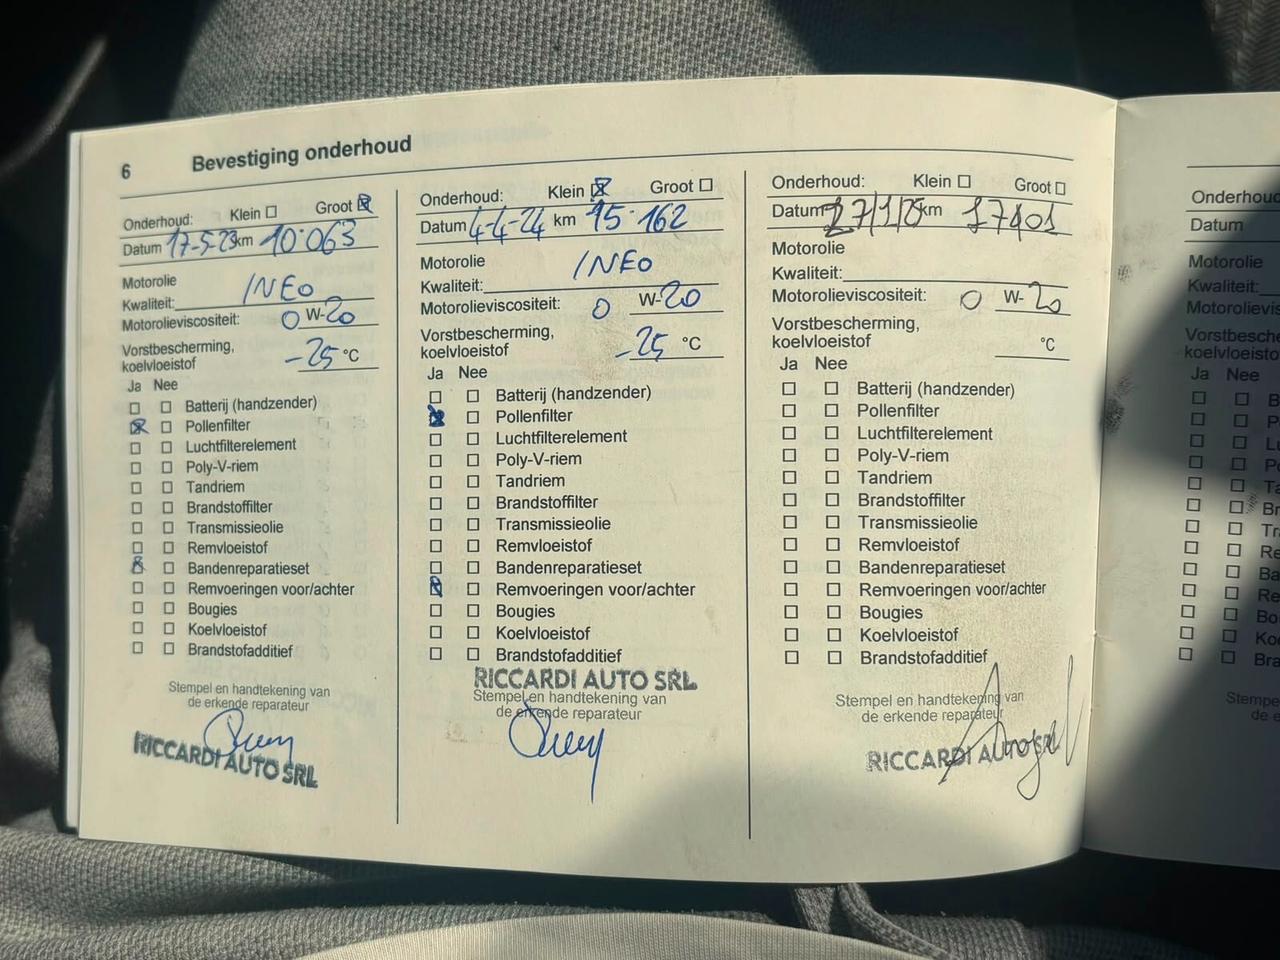 6 Bevestiging onderhoud
Onderhoud: Klein Groot
Datum 17-5-23 km 10.063
Motorolie
Kwaliteit: INEO
Motorolieviscositeit: 0 W-20
Vorstbescherming,
koelvloeistof -25 °C
Ja Nee
Batterij (handzender)
Pollenfilter
Luchtfilterelement
Poly-V-riem
Tandriem
Brandstoffilter
Transmissieolie
Remvloeistof
Bandenreparatieset
Remvoeringen voor/achter
Bougies
Koelvloeistof
Brandstofadditief
Stempel en handtekening van
de erkende reparateur
RICCARDI AUTO SRL
Onderhoud: Klein Groot
Datum 4-4-24 km 15 162
Motorolie
Kwaliteit: INEO
Motorolieviscositeit: 0 W-20
Vorstbescherming,
koelvloeistof -25 °C
Ja Nee
Batterij (handzender)
Pollenfilter
Luchtfilterelement
Poly-V-riem
Tandriem
Brandstoffilter
Transmissieolie
Remvloeistof
Bandenreparatieset
Remvoeringen voor/achter
Bougies
Koelvloeistof
Brandstofadditief
RICCARDI AUTO SRL
Stempel en handtekening van
de erkende reparateur
Onderhoud: Klein Groot
Datum 27/1/25 km 17401
Motorolie
Kwaliteit:
Motorolieviscositeit: 0 W-20
Vorstbescherming,
koelvloeistof °C
Ja Nee
Batterij (handzender)
Pollenfilter
Luchtfilterelement
Poly-V-riem
Tandriem
Brandstoffilter
Transmissieolie
Remvloeistof
Bandenreparatieset
Remvoeringen voor/achter
Bougies
Koelvloeistof
Brandstofadditief
Stempel en handtekening van
de erkende reparateur
RICCARDI AUTO SRL
Datum
Motorolie
Kwaliteit:
Ja Nee